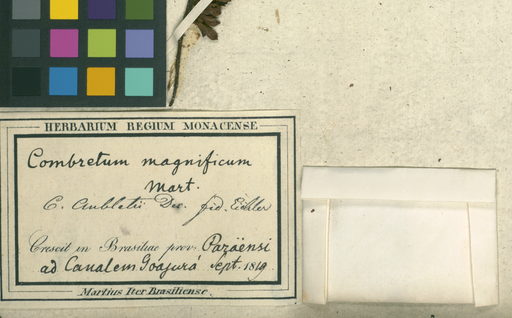 HERBARIUM REGIUM MONACENSE
Combretum magnificum
Mart.
C. Aubletii Dec. fid. Eichler
Crescit in Brasiliae prov. Paraënsi
ad Canalem Goajurá Sept. 1819.
Martius Iter Brasiliense.